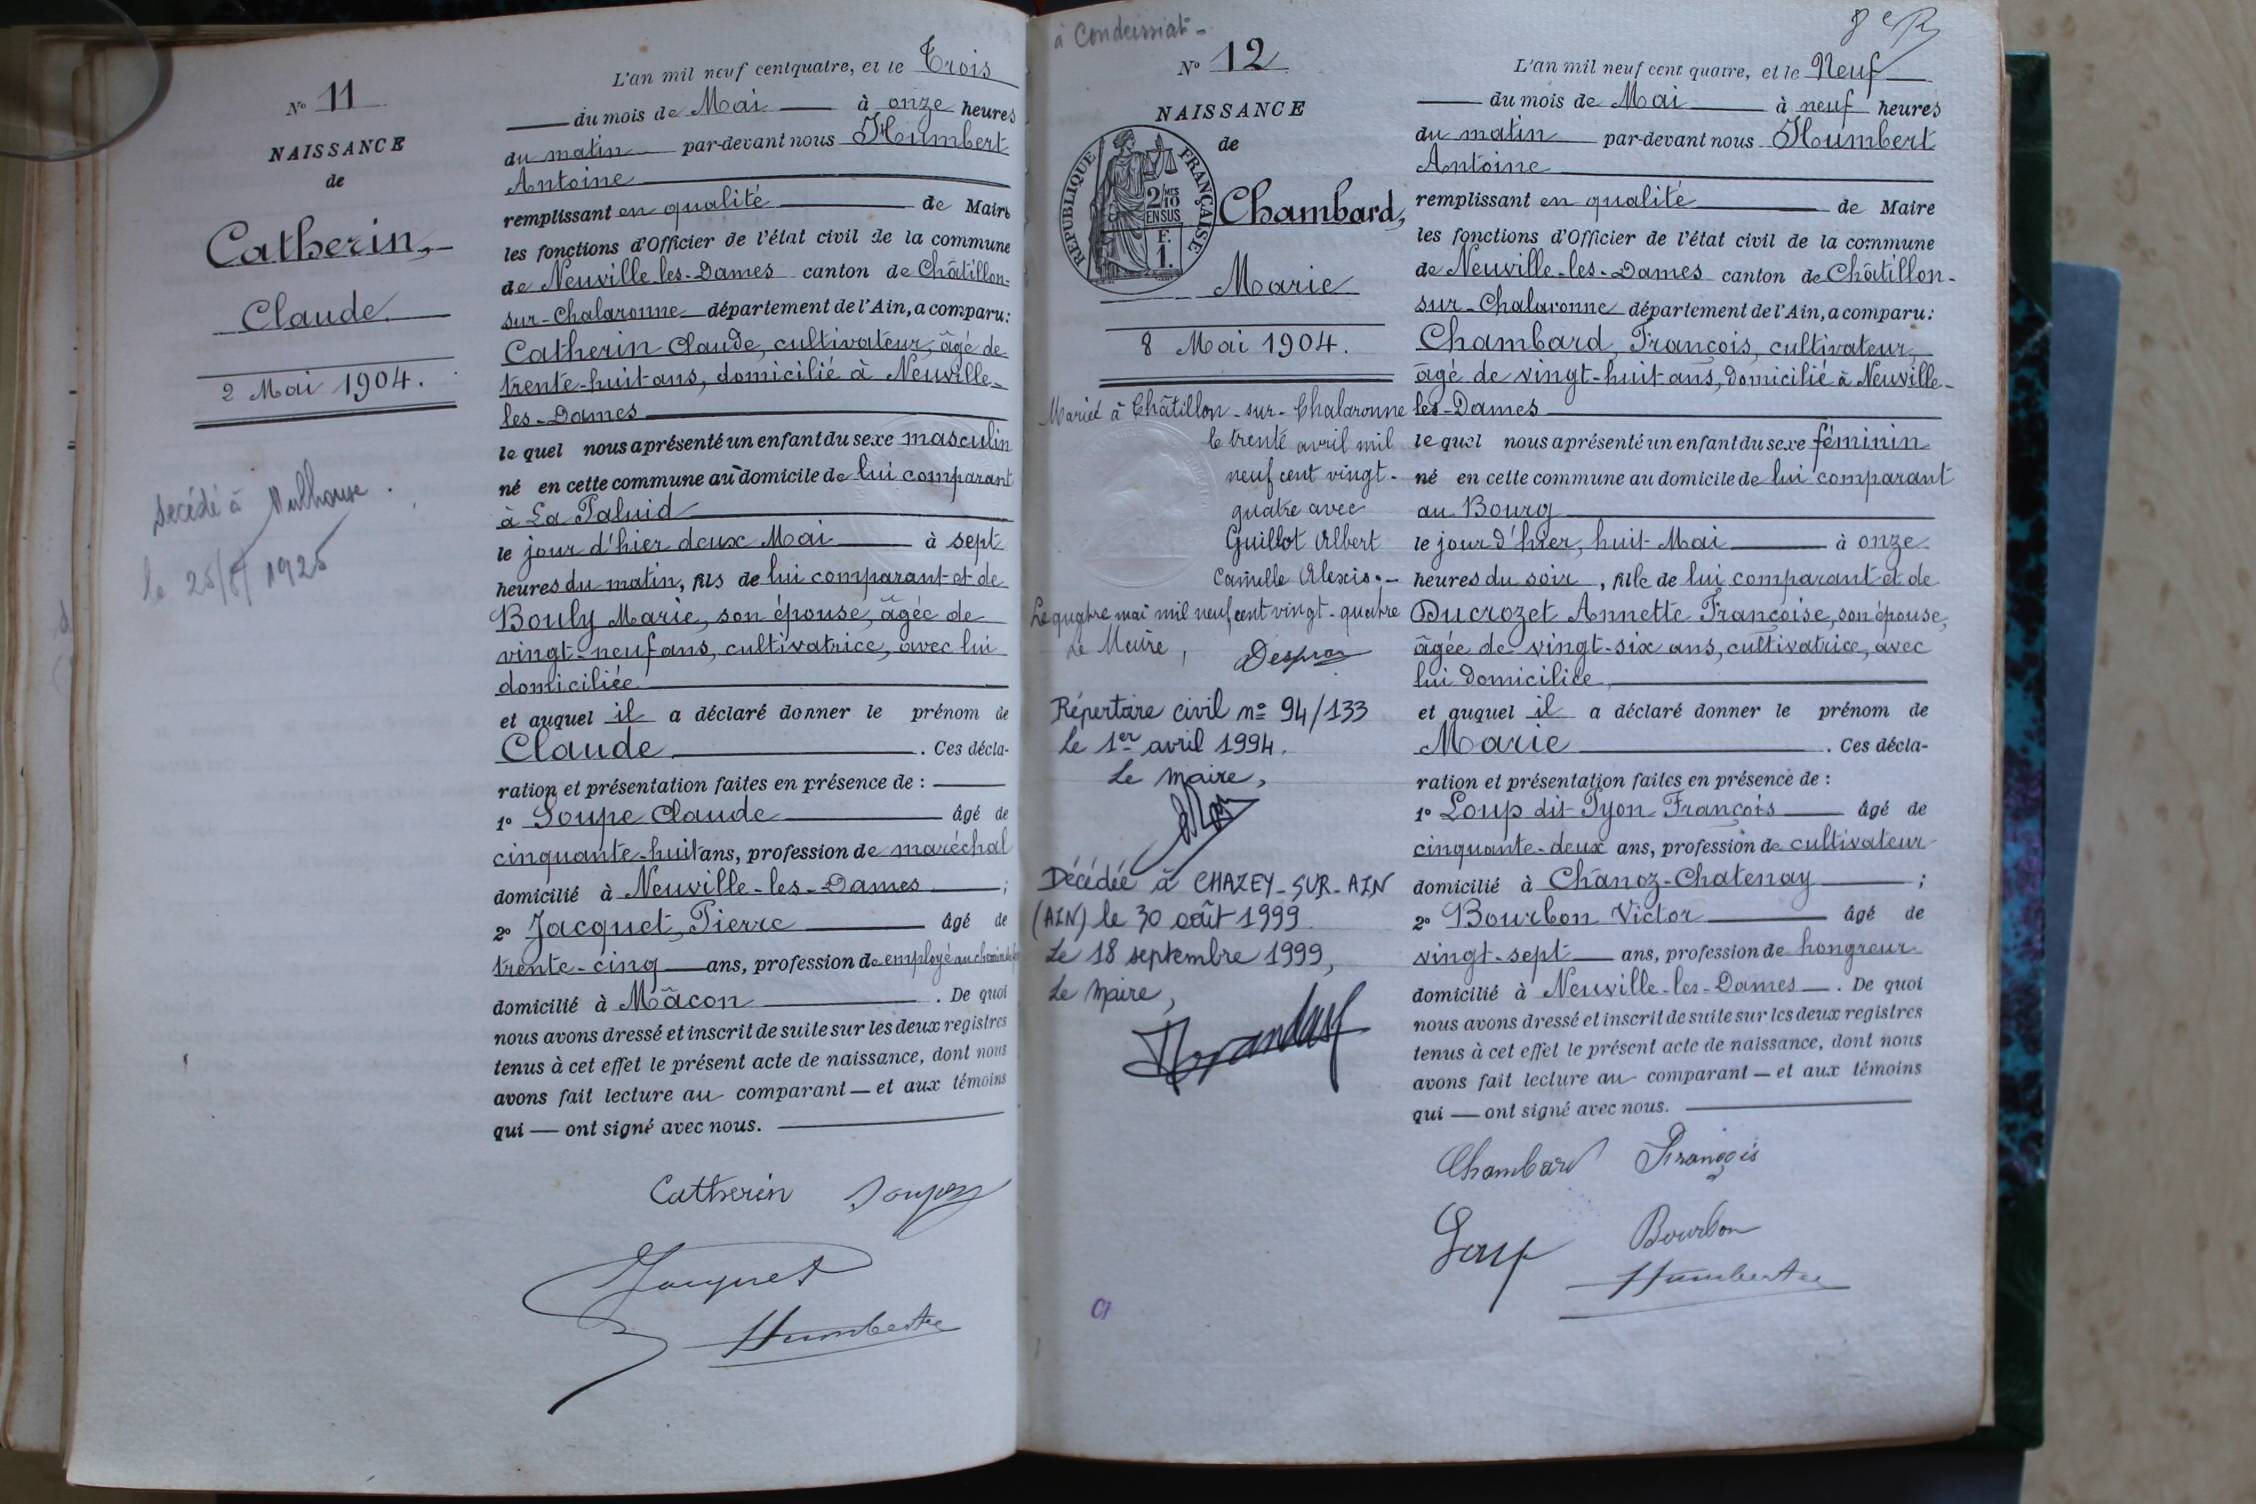 N° 11
NAISSANCE
de
Catherin,
Claude
2 Mai 1904.
décédé à Mulhouse
le 1925
L'an mil neuf cent quatre, et le Trois
du mois de Mai à onze heures
du matin par-devant nous Humbert
Antoine
remplissant en qualité de Maire
les fonctions d'Officier de l'état civil de la commune
de Neuville-les-Dames canton de Châtillon-
sur-Chalaronne département de l'Ain, a comparu:
Catherin Claude, cultivateur, âgé de
trente-huit ans, domicilié à Neuville-
les-Dames
le quel nous a présenté un enfant du sexe masculin
né en cette commune au domicile de lui comparant
à La Paluid
le jour d'hier deux Mai à sept
heures du matin, fils de lui comparant et de
Bouly Marie, son épouse, âgée de
vingt-neuf ans, cultivatrice, avec lui
domiciliée
et auquel il a déclaré donner le prénom de
Claude . Ces décla-
ration et présentation faites en présence de :
1° Soupe Claude âgé de
cinquante-huit ans, profession de maréchal
domicilié à Neuville-les-Dames ;
2° Jacquet, Pierre âgé de
trente-cinq ans, profession de employé au chemin de fer
domicilié à Mâcon . De quoi
nous avons dressé et inscrit de suite sur les deux registres
tenus à cet effet le présent acte de naissance, dont nous
avons fait lecture au comparant — et aux témoins
qui — ont signé avec nous.
Catherin Soupe
Jacquet
Humbert
à Condeissiat -
N° 12
NAISSANCE
de
RÉPUBLIQUE FRANÇAISE
2/10
EN SUS
F.
1.
Chambard,
Marie
8 Mai 1904.
Mariée à Châtillon-sur-Chalaronne
le trente avril mil
neuf cent vingt-
quatre avec
Guillot Albert
Camille Alexis.-
Le quatre mai mil neuf cent vingt-quatre
Le Maire,
Répertoire civil n° 94/133
Le 1er avril 1994.
Le Maire,
Décédée à CHAZEY-SUR-AIN
(AIN) le 30 août 1999
Le 18 septembre 1999,
Le Maire,
L'an mil neuf cent quatre, et le Neuf
du mois de Mai à neuf heures
du matin par-devant nous Humbert
Antoine
remplissant en qualité de Maire
les fonctions d'Officier de l'état civil de la commune
de Neuville-les-Dames canton de Châtillon-
sur-Chalaronne département de l'Ain, a comparu:
Chambard, François, cultivateur,
âgé de vingt-huit ans, domicilié à Neuville-
les-Dames
le quel nous a présenté un enfant du sexe féminin
né en cette commune au domicile de lui comparant
au Bourg
le jour d'hier, huit Mai à onze
heures du soir, fille de lui comparant et de
Ducrozet Annette Françoise, son épouse,
âgée de vingt-six ans, cultivatrice, avec
lui domiciliée
et auquel il a déclaré donner le prénom de
Marie . Ces décla-
ration et présentation faites en présence de :
1° Loup dit Tyon François âgé de
cinquante-deux ans, profession de cultivateur
domicilié à Chanoz-Chatenay ;
2° Bourbon Victor âgé de
vingt-sept ans, profession de hongreur
domicilié à Neuville-les-Dames . De quoi
nous avons dressé et inscrit de suite sur les deux registres
tenus à cet effet le présent acte de naissance, dont nous
avons fait lecture au comparant — et aux témoins
qui — ont signé avec nous.
Chambard François
Loup Bourbon
Humbert